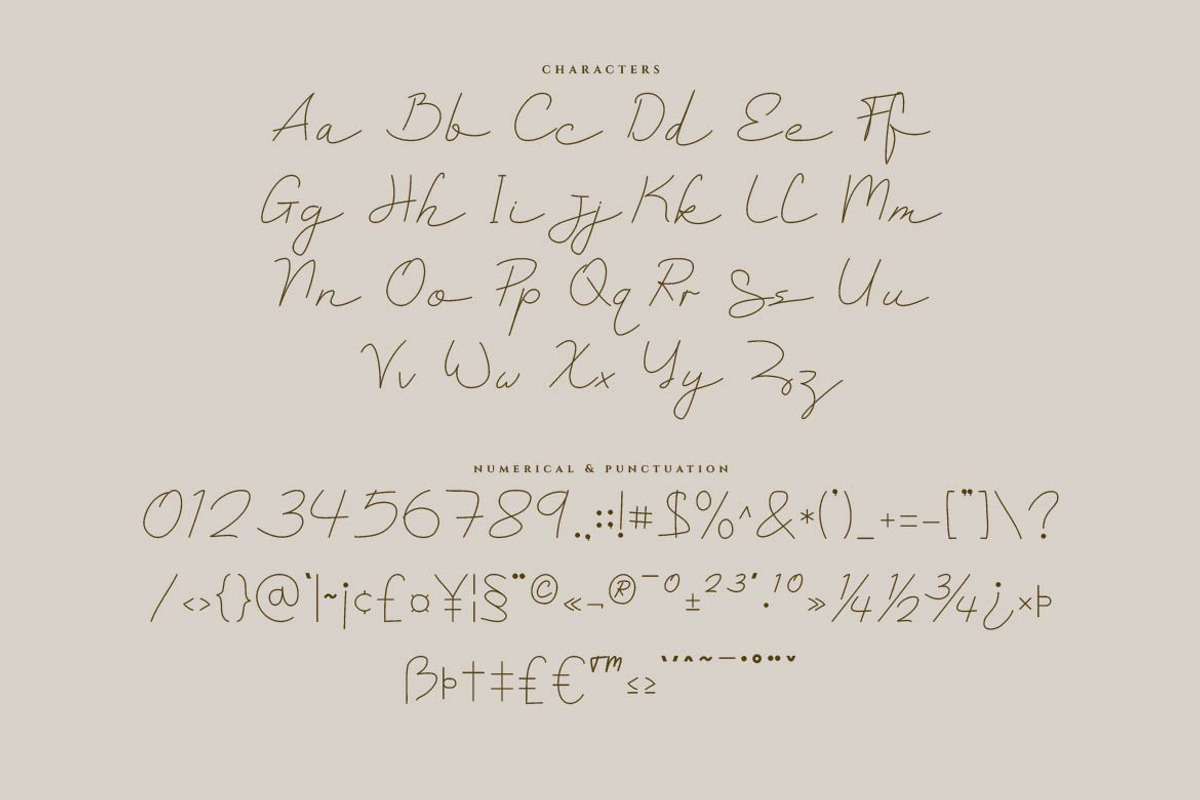 CHARACTERS
Aa Bb Cc Dd Ee Ff
Gg Hh Ii Jj Kk Ll Mm
Nn Oo Pp Qq Rr Ss Uu
Vv Ww Xx Yy Zz
NUMERICAL & PUNCTUATION
0123456789.,:;!#$%^&*(')_+=-["]\?
/<>{}@`|~¡¢£¤¥¦§¨©«¬®¯º±²³´·¹⁰»¼½¾¿×Þ
ßþ†‡₤€™≤≥`´^~¯˙°¨ˇ